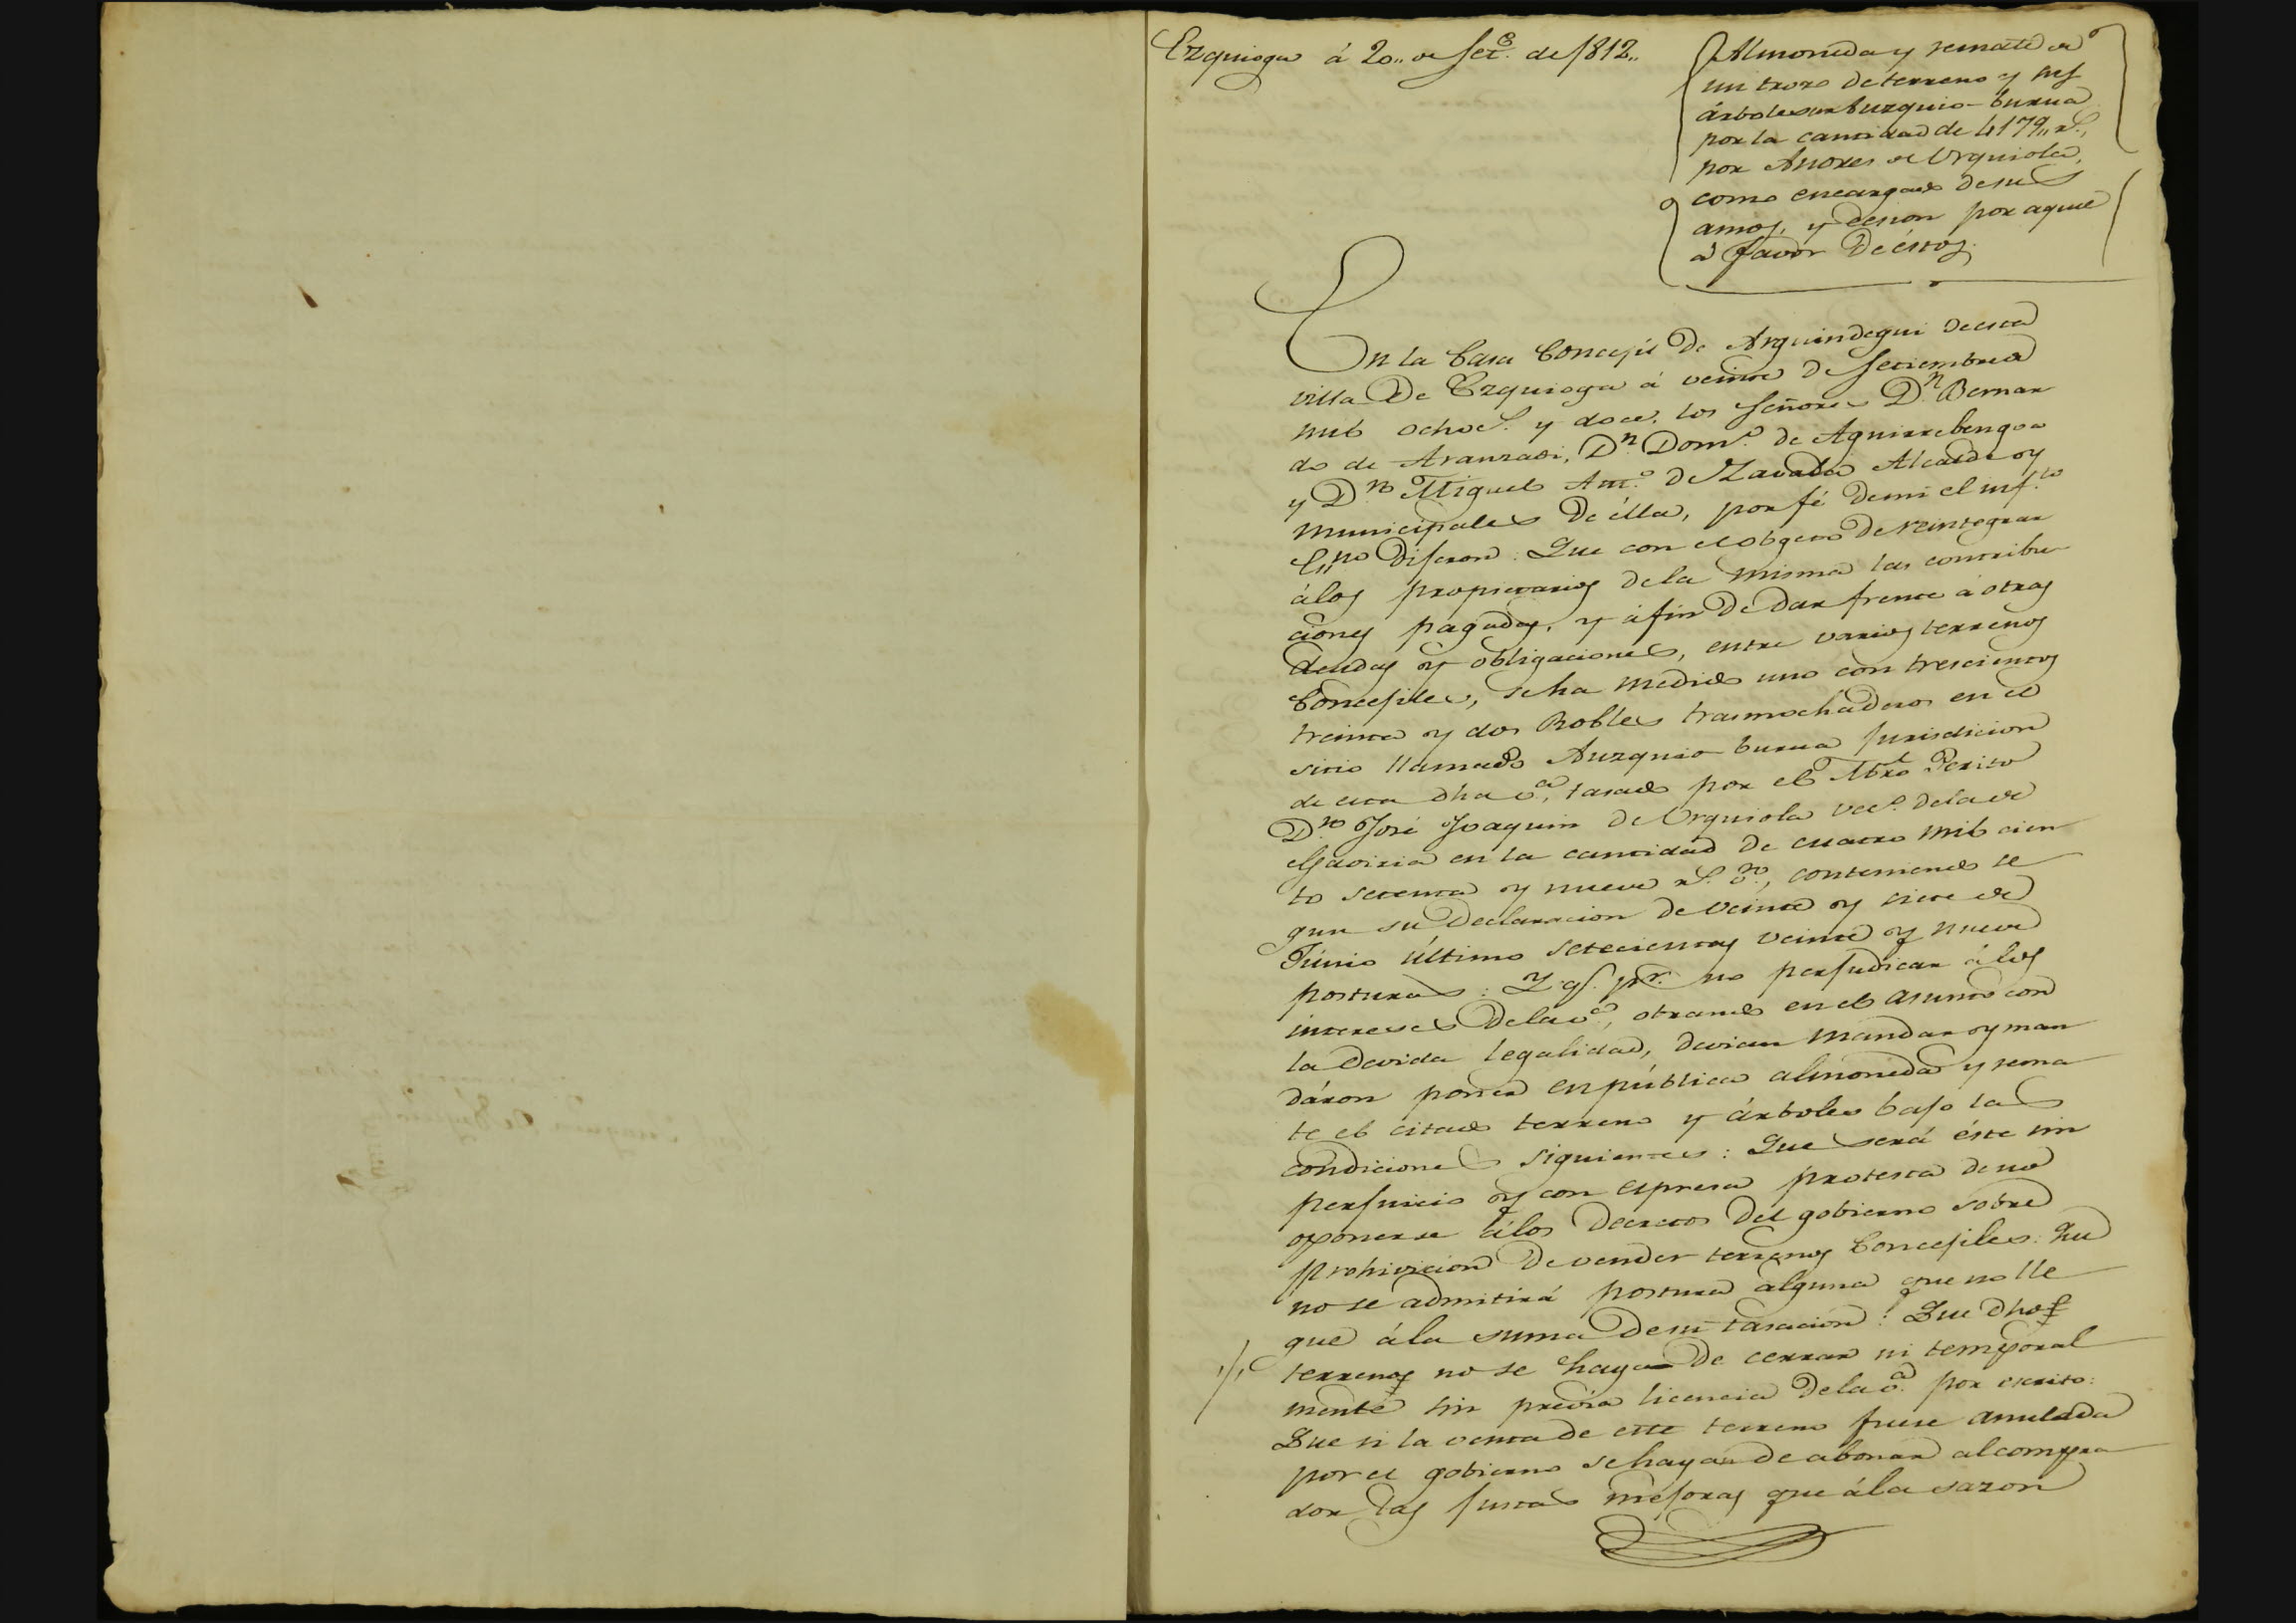 Ezquioga á 20,, de Set.e de 1812,,
Almoneda y remate de
un trozo de terreno y sus
árboles en Auzquio-burua
por la cantidad de 4179,, rs.,
por Andres de Urquiola,
como encargado de sus
amos, y cesion por aquel
á favor de éstos.
En la Casa Concejil de Arguindegui de esta
villa de Ezquioga á veinte de Setiembre de
mil ochocs. y doce, los Señores Dn. Bernar
do de Aranzadi, Dn. Domo. de Aguirrebengoa
y Dn. Miguel Anto. de Zavala Alcalde y
municipales de élla, por fé de mi el infto.
Esno. dijeron: Que con el obgeto de reintegrar
álos propietarios de la misma las contribu
ciones pagadas, y á fin de dar frente á otras
deudas y obligaciones, entre varios terrenos
Concejiles, se ha medido uno con trescientos
treinta y dos Robles trasmochaderos en el
sitio llamado Auzquio-burua jurisdicion
de esta dha va., tasado por el Mtro Perito
Dn. José Joaquin de Urquiola veco. de la de
Gaviria en la cantidad de cuatro mil cien
to setenta y nueve rs. vn., conteniendo se
gun su declaracion de veinte y siete de
Júnio último setecientas veinte y nueve
posturas: Y qe. pr. no perjudicar á los
intereses de la va., obrando en el asunto con
la devida legalidad, devian mandar y man
dáron poner en pública almoneda y rema
te el citado terreno y árboles bajo las
condiciones siguientes: Que será éste sin
perjuicio y con espresa protesta de no
oponerse álos decretos del gobierno sobre
prohivicion de vender terrenos Concejiles: Que
no se admitirá postura alguna que no lle
gue á la suma de su tasacion: Que dhos
terrenos no se hayan de cerrar ni temporal
mente sin prévia licencia de la va. por escrito:
Que si la venta de este terreno fuese anulada
por el gobierno se hayan de abonar al compra
dor las justas mejoras que á la sazon